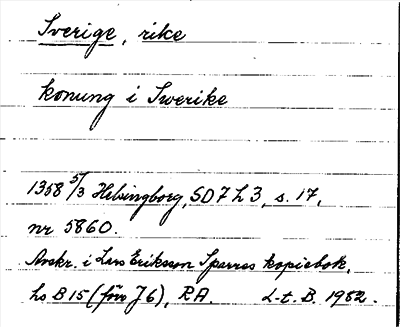 Sverige, rike
konung i Swerike
1358 5/3 Helsingborg, SD 7 h 3, s. 17,
nr 5860.
Avskr. i Lars Eriksson Sparres kopiebok,
hs B 15 (förr J 6), RA. L-t. B. 1982.